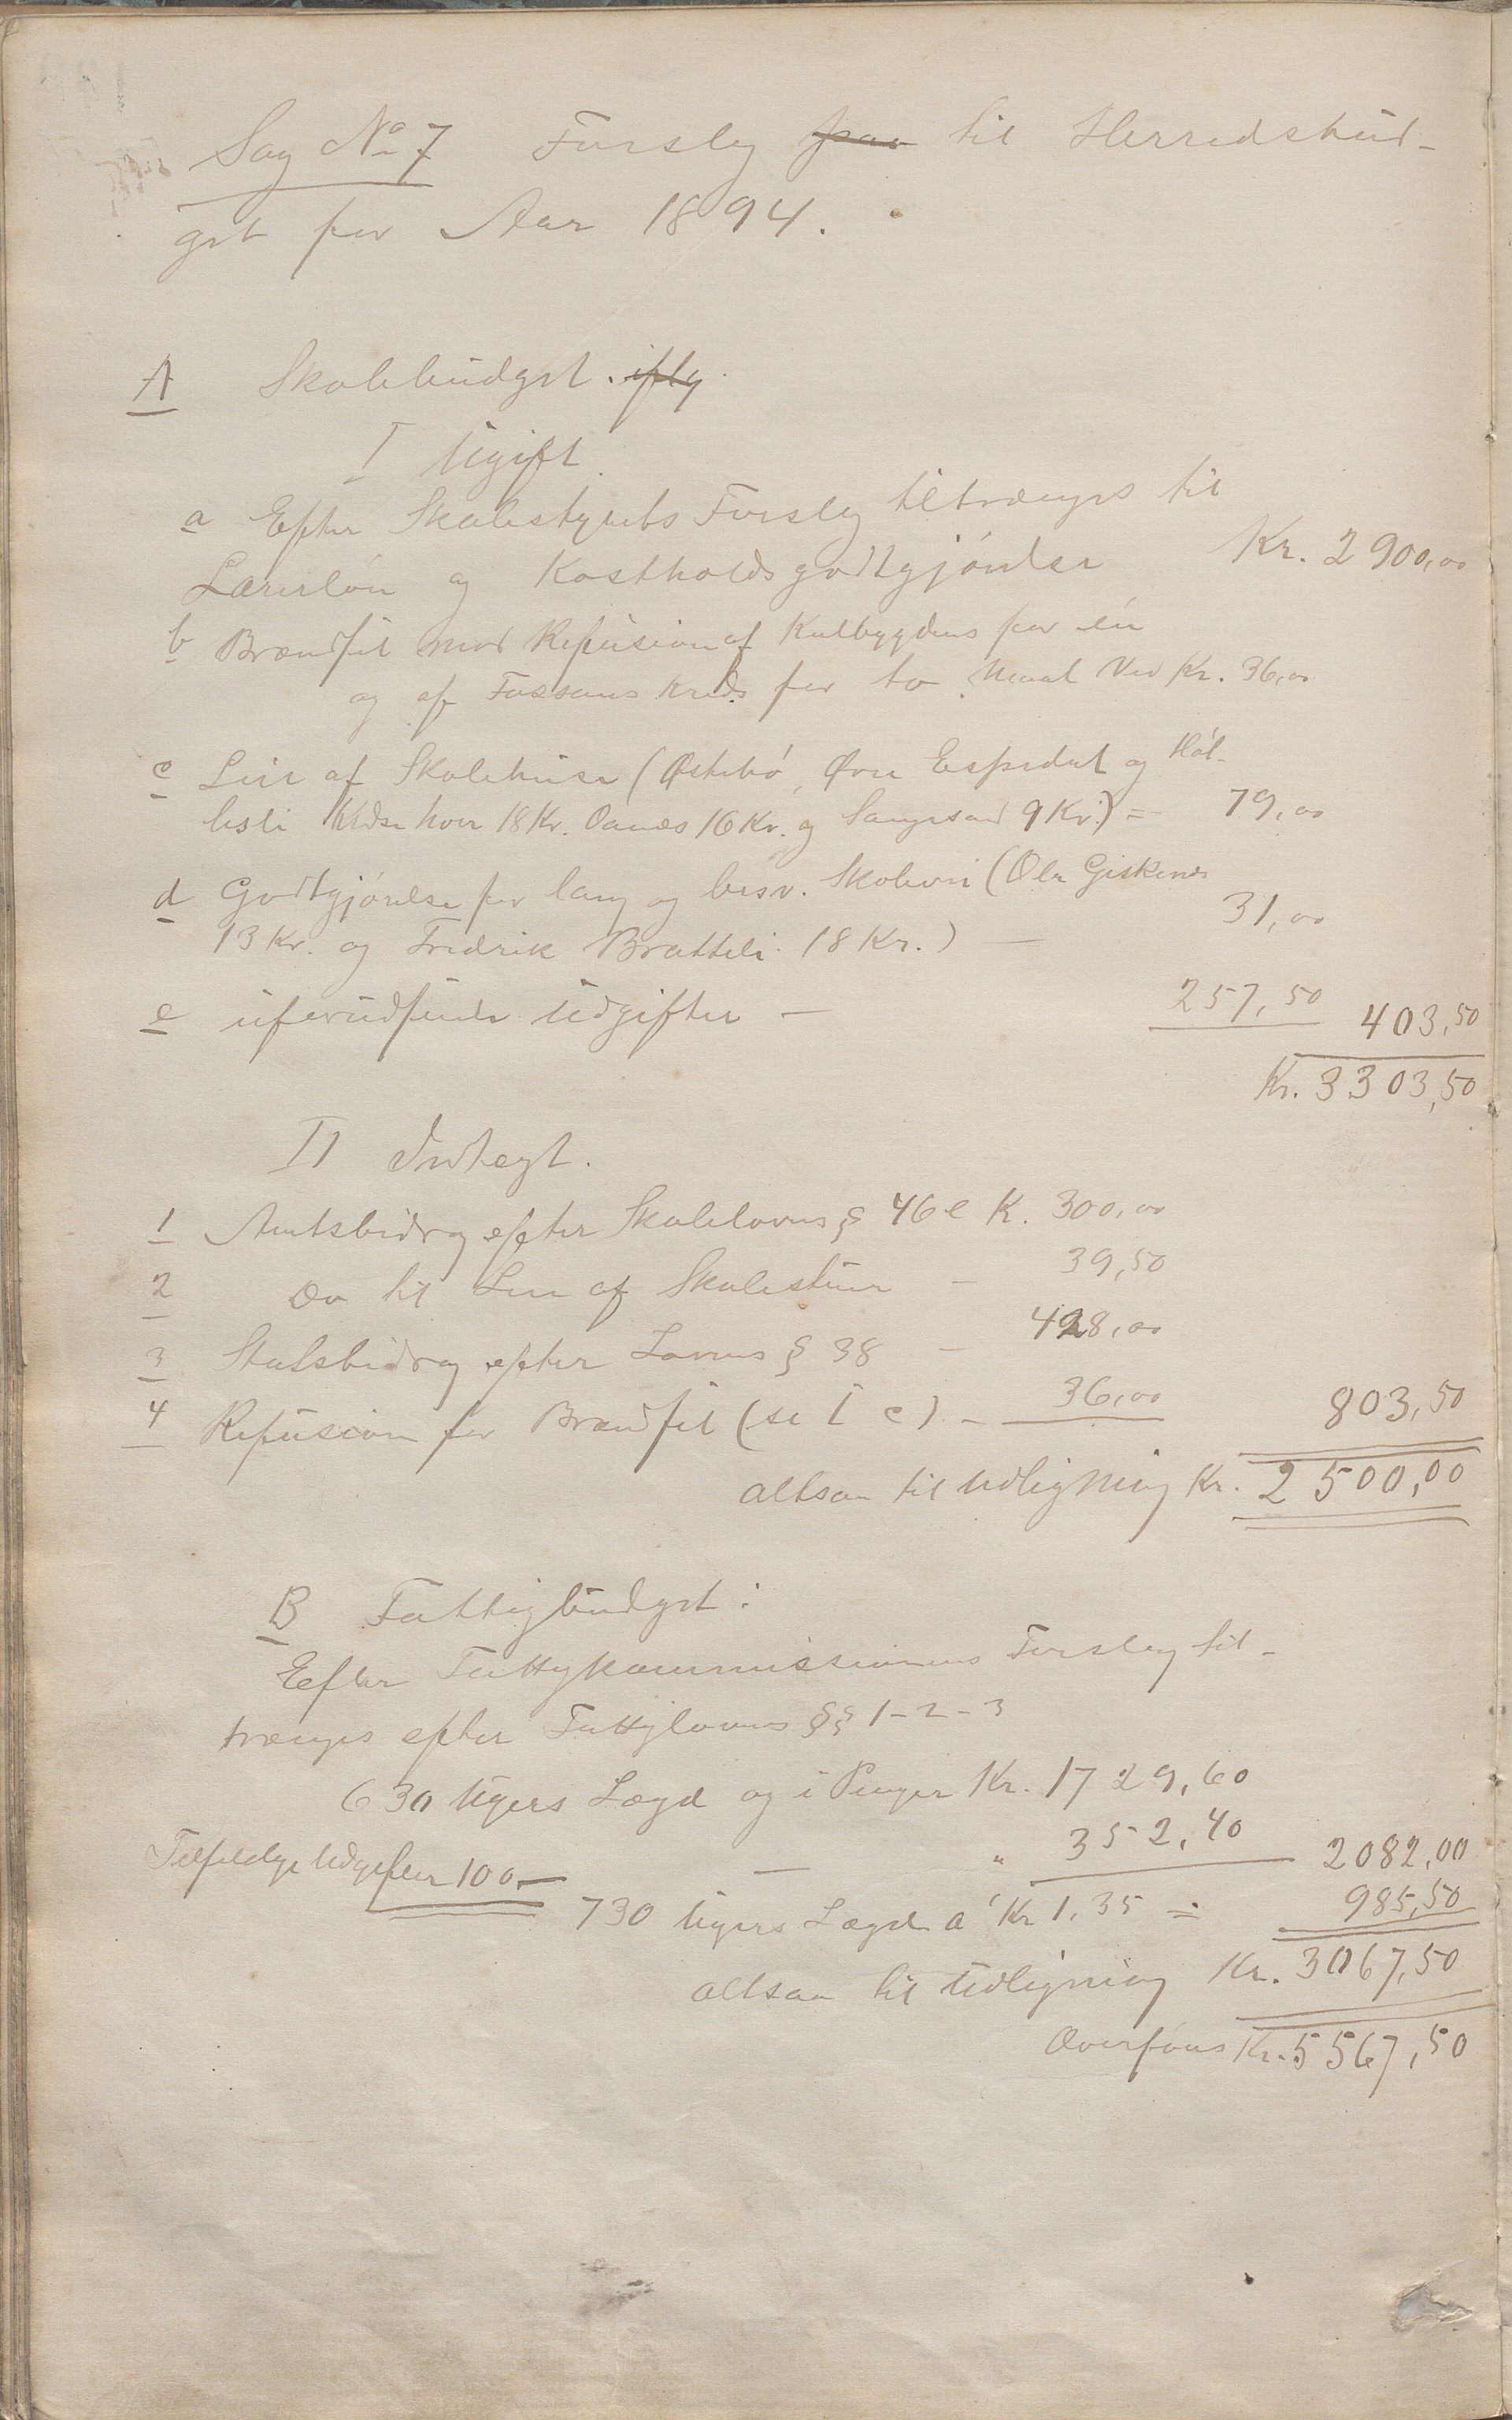 Sag No 7 Forslag paa til Herredsbud-
get for Aar 1894.
A Skolebudget. iflg.
I Ugift
a Efter Skolestyrets Forslag tiltrænges til
Lærerløn og Kostholdsgodtgjørelse Kr. 2900,00
b Brændsel mod Refusion af Kulbygdens for én
og af Fossans Kreds for to Maal Ved Kr. 36,00
c Leie af Skolehuse (Østebø, Øvre Espedal og Höl-
lesli Kredse hver 18 Kr. Oanes 16 Kr. og Songesand 9 Kr.) = 79,00
d Godtgjørelse for lang og besv. Skolevei (Ola Giskenes
13 Kr. og Fredrik Bratteli 18 Kr.) — 31,00
e uforudseede Udgifter — 257,50 403,50
Kr. 3303,50
II Indtegt.
1 Amtsbidrag efter Skolelovens § 46 e K. 300,00
2 Do til Leie af Skolestuer — 39,50
3 Statsbidrag efter Lovens § 38 — 428,00
4 Refusion for Brændsel (se I c) — 36,00 803,50
altsaa til Udligning Kr. 2500,00
B Fattigbudget:
Efter Fattigkommissionens Forslag til-
trænges efter Fattiglovens §§ 1-2-3
630 Ugers Lægd og i Penger Kr. 1729,60
Tilfeldige Udgifter 100 — — " 352,40 2082,00
730 Ugers Lægd a Kr 1,35 = 985,50
altsaa til Udligning Kr. 3067,50
Overføres Kr. 5567,50